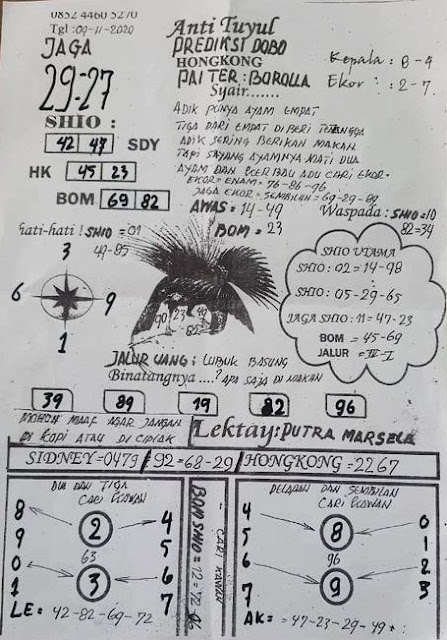 0852 4460 5270
Tgl : 09-11-2020
Anti Tuyul
JAGA
29-27
PREDIKSI DOBO
HONGKONG
PAITER : BOROLLA
Syair.......
Kepala : 8-9
Ekor : 2-7
SHIO :
42 47 SDY
HK 45 23
BOM 69 82
ADIK PUNYA AYAM EMPAT
TIGA DARI EMPAT DI BERI TETANGGA
ADIK SERING BERIKAN MAKAN
TAPI SAYANG AYAMNYA MATI DUA
AYAM DAN KERBAU ADU CARI EKOR.
EKOR = ENAM = 76-86-96
JAGA EKOR = SEMBILAN = 69-29-89
AWAS = 14-49
Waspada : SHIO = 10
82=34
Hati-hati ! SHIO = 01
49-85
BOM = 23
3
6 9
1
SHIO UTAMA
SHIO : 02 = 14-98
SHIO : 05-29-65
JAGA SHIO : 11 = 47-23
BOM = 45-69
JALUR = III-I
JALUR UANG : LUBUK BASUNG
Binatangnya ....? APA SAJA DI MAKAN
39 89 19 82 96
MOHON MAAF AGAR JANGAN
DI KOPI ATAU DI CIPLAK
Lektay : PUTRA MARSELA
SIDNEY = 0479 92 = 68-29 HONGKONG = 2267
DUA DAN TIGA
CARI KAWAN
8 2 4
9 5
63
0 3 6
1 7
LE = 42-82-69-72
BOM SHIO = 12 = 72
CARI KAWAN
DELAPAN DAN SEMBILAN
CARI KAWAN
4 8 0
5 1
96
6 9 2
7 3
AK = 47-23-29-49